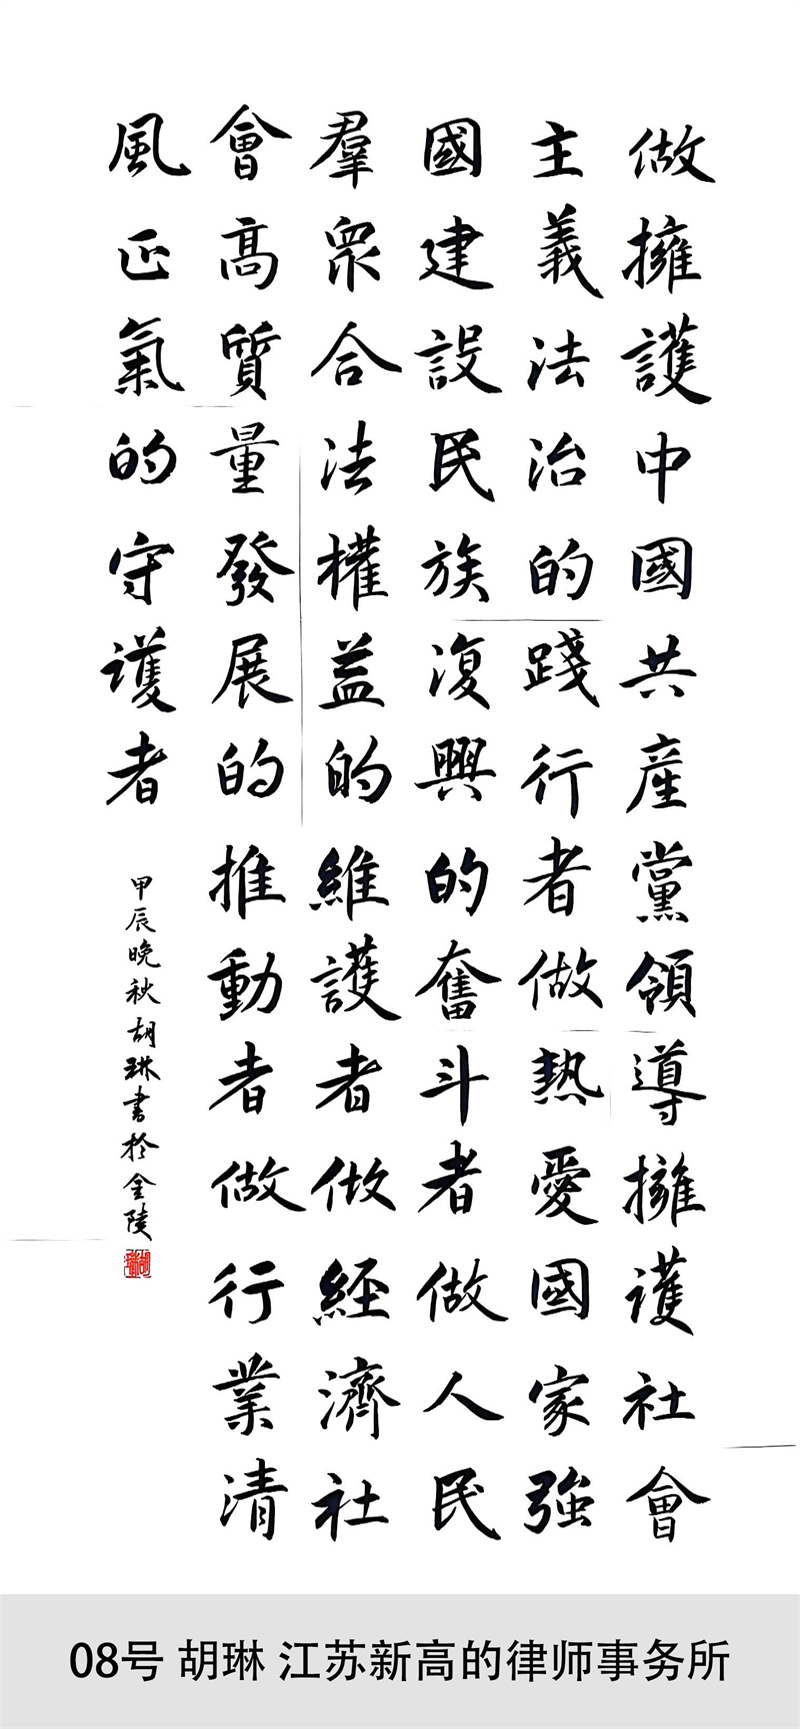 做擁護中國共産黨領導擁護社會
主義法治的踐行者做熱愛國家強
國建設民族復興的奮斗者做人民
羣衆合法權益的維護者做經濟社
會高質量發展的推動者做行業清
風正氣的守護者
甲辰晚秋胡琳書於金陵
08号 胡琳 江苏新高的律师事务所